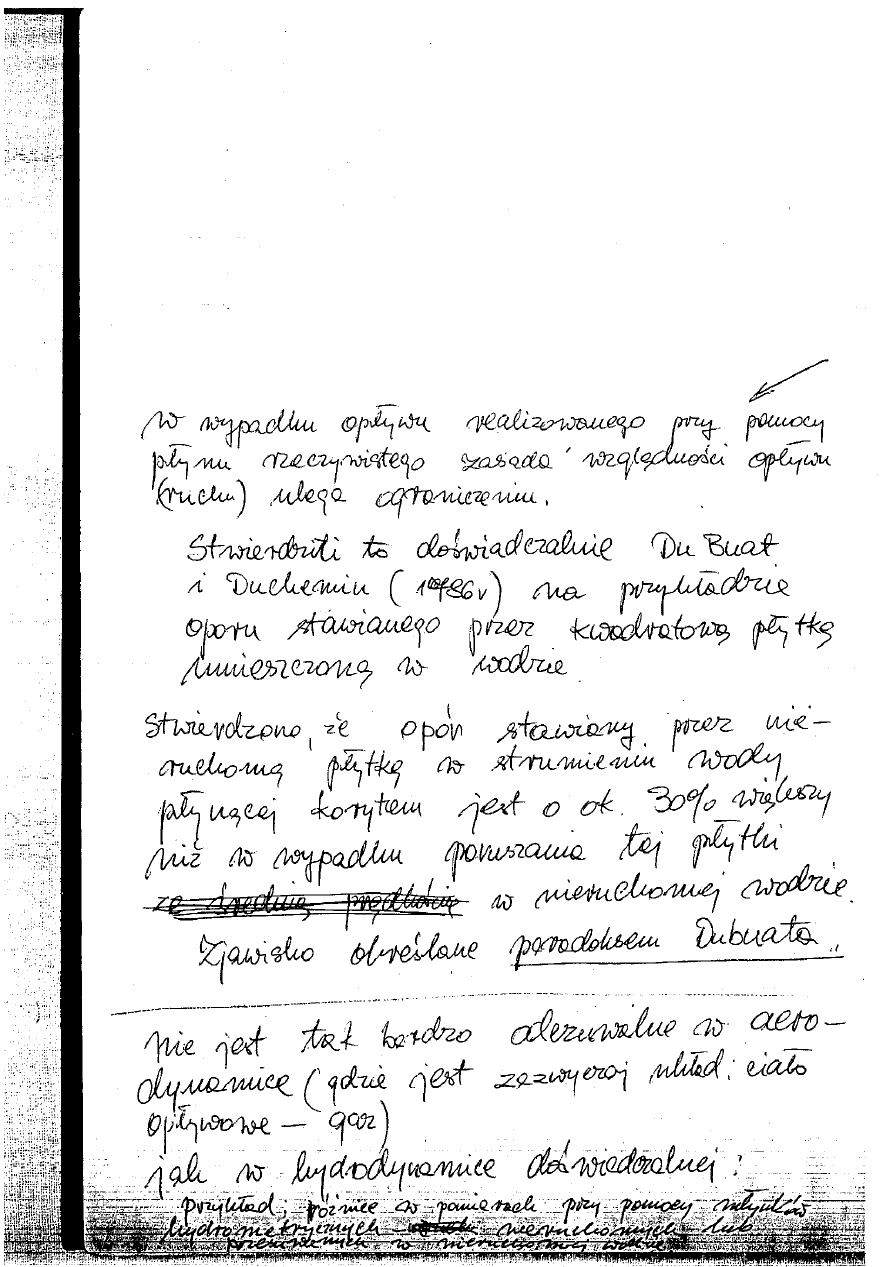 W wypadku opływu realizowanego przy pomocy
płynu rzeczywistego zasada względności opływu
(ruchu) ulega ograniczeniu.
Stwierdzili to doświadczalnie Du Buat
i Duchemin (1786r) na przykładzie
oporu stawianego przez kwadratową płytkę
umieszczoną w wodzie
Stwierdzono, że opór stawiany przez nie-
ruchomą płytkę w strumieniu wody
płynącej korytem jest o ok. 30% większy
niż w wypadku poruszania tej płytki
ze średnią prędkością w nieruchomej wodzie.
Zjawisko określane paradoksem Dubuata „
nie jest tak bardzo
w aero-
dynamice (gdzie jest zazwyczaj układ: ciało
opływowe – gaz)
jak w hydrodynamice doświadczalnej:
przykład: różnice w pomiarach przy pomocy młynków
hydrometrycznych – nieruchomych lub
w nieruchomej wodzie